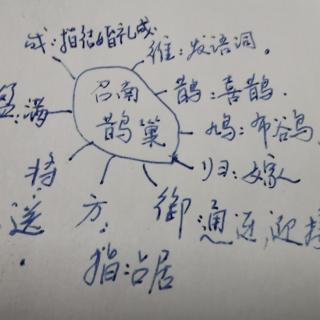 成:指结婚礼成
维:发语词。
召南
鹊巢
鹊:喜鹊.
盈:满
鸠:布谷鸟
归:嫁人
将
送
方:
指:占居
御:通迓,迎接